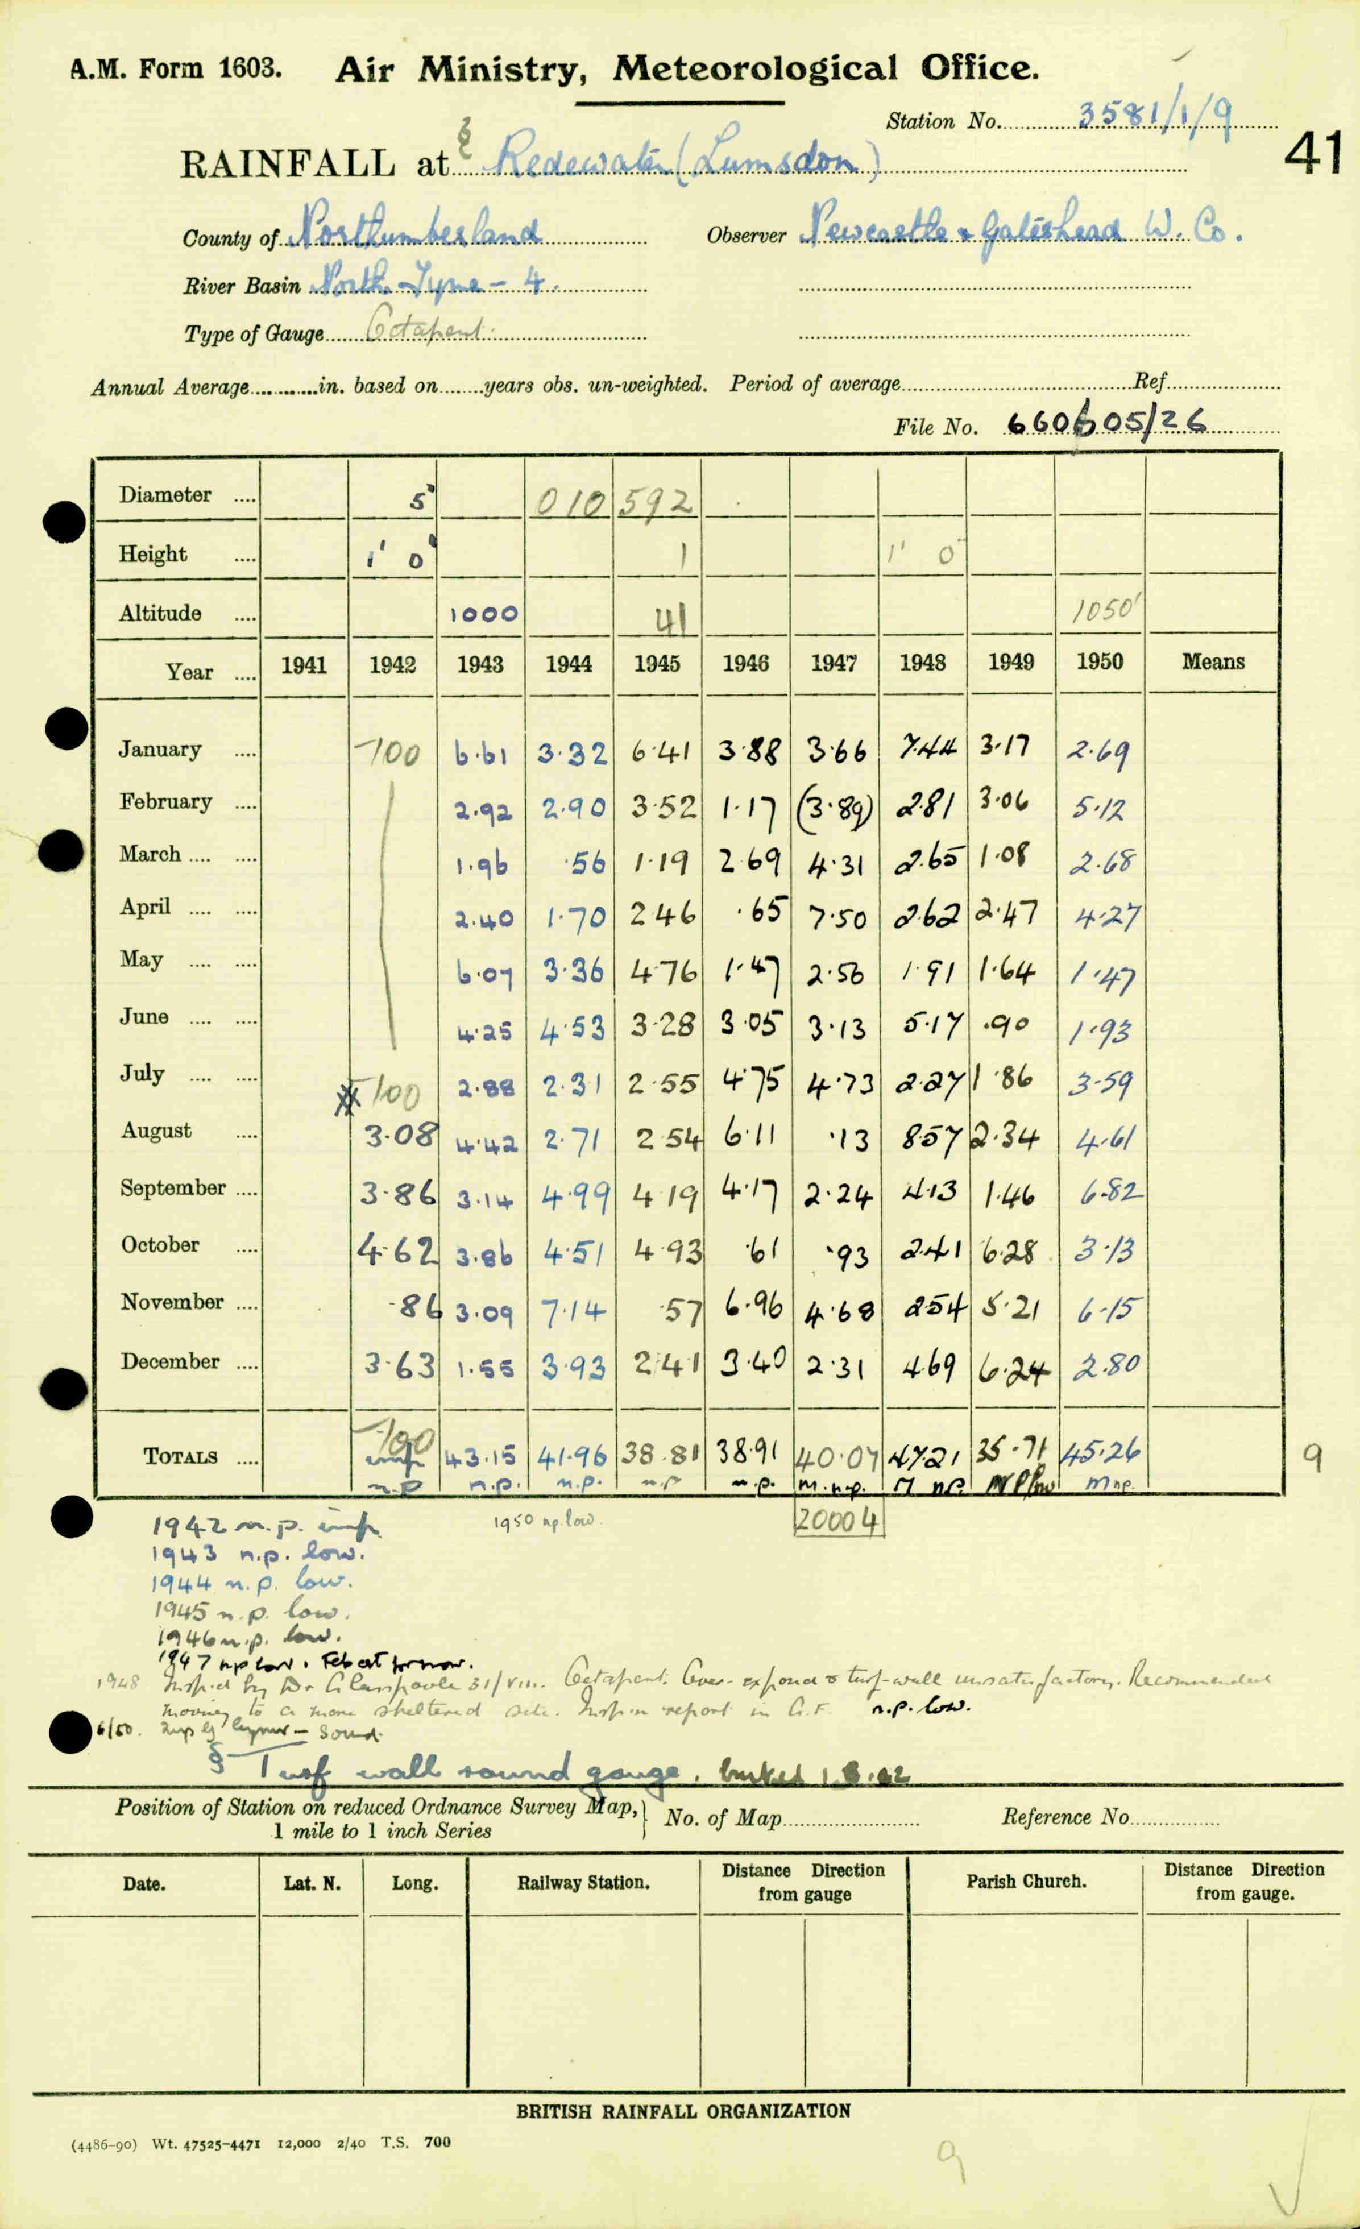 A.M. Form 1603. Air Ministry, Meteorological Office.
Station No. 3581/1/9
41
RAINFALL at § Redewater (Lumsdon)
County of Northumberland Observer Newcastle & Gateshead W. Co.
River Basin North Tyne - 4.
Type of Gauge Octapent.
Annual Average in. based on years obs. un-weighted. Period of average Ref.
File No. 660605/26
Diameter 5" 010 592
Height 1' 0" 1 1' 0"
Altitude 1000 41 1050'
Year 1941 1942 1943 1944 1945 1946 1947 1948 1949 1950 Means
January -100 6.61 3.32 6.41 3.88 3.66 7.44 3.17 2.69
February 2.92 2.90 3.52 1.17 (3.89) 2.81 3.06 5.12
March 1.96 .56 1.19 2.69 4.31 2.65 1.08 2.68
April 2.40 1.70 2.46 .65 7.50 2.62 2.47 4.27
May 6.07 3.36 4.76 1.47 2.56 1.91 1.64 1.47
June 4.25 4.53 3.28 3.05 3.13 5.17 .90 1.93
July -100 2.88 2.31 2.55 4.75 4.73 2.27 1.86 3.59
August 3.08 4.42 2.71 2.54 6.11 .13 8.57 2.34 4.61
September 3.86 3.14 4.99 4.19 4.17 2.24 4.13 1.46 6.82
October 4.62 3.86 4.51 4.93 .61 .93 2.41 6.28 3.13
November .86 3.09 7.14 .57 6.96 4.68 2.54 5.21 6.15
December 3.63 1.55 3.93 2.41 3.40 2.31 4.69 6.24 2.80
TOTALS -100 imp 43.15 41.96 38.81 38.91 40.07 47.21 35.71 45.26 9
n.p. n.p. n.p. n.p. n.p. m.n.p. n.p. m n.p.
1942 n.p. imp. 1950 n.p. low. 20004
1943 n.p. low.
1944 n.p. low.
1945 n.p. low.
1946 n.p. low.
1947 n.p. low. Feb est
1948 Insp'd by Dr Glasspoole 31/VIII. Octapent. Over-exposed & turf-wall unsatisfactory. Recommended
moving to a more sheltered site. Insp'n report in G.F. n.p. low.
6/50. Insp by - Sound.
§ Turf wall round gauge.
Position of Station on reduced Ordnance Survey Map, 1 mile to 1 inch Series No. of Map Reference No.
Date. Lat. N. Long. Railway Station. Distance Direction from gauge Parish Church. Distance Direction from gauge.
BRITISH RAINFALL ORGANIZATION
(4486-90) Wt. 47525-4471 12,000 2/40 T.S. 700
9